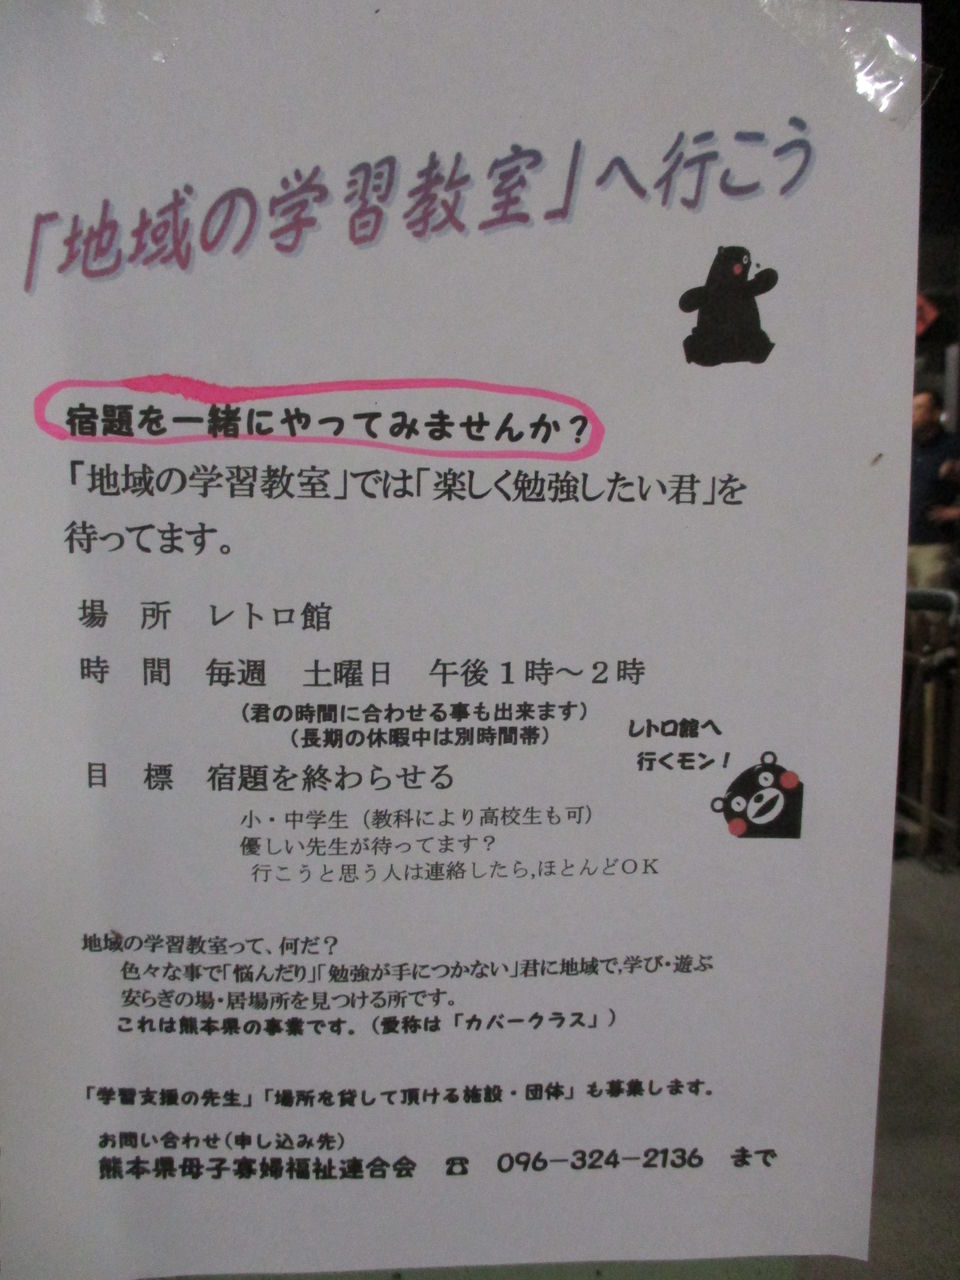 「地域の学習教室」へ行こう
宿題を一緒にやってみませんか？
「地域の学習教室」では「楽しく勉強したい君」を
待ってます。
場　所　レトロ館
時　間　毎週　土曜日　午後１時～２時
（君の時間に合わせる事も出来ます）
（長期の休暇中は別時間帯）
レトロ館へ
行くモン！
目　標　宿題を終わらせる
小・中学生（教科により高校生も可）
優しい先生が待ってます？
行こうと思う人は連絡したら,ほとんどＯＫ
地域の学習教室って、何だ？
色々な事で「悩んだり」「勉強が手につかない」君に地域で,学び・遊ぶ
安らぎの場・居場所を見つける所です。
これは熊本県の事業です。（愛称は「カバークラス」）
「学習支援の先生」「場所を貸して頂ける施設・団体」も募集します。
お問い合わせ（申し込み先）
熊本県母子寡婦福祉連合会　☎　096－324－2136　まで